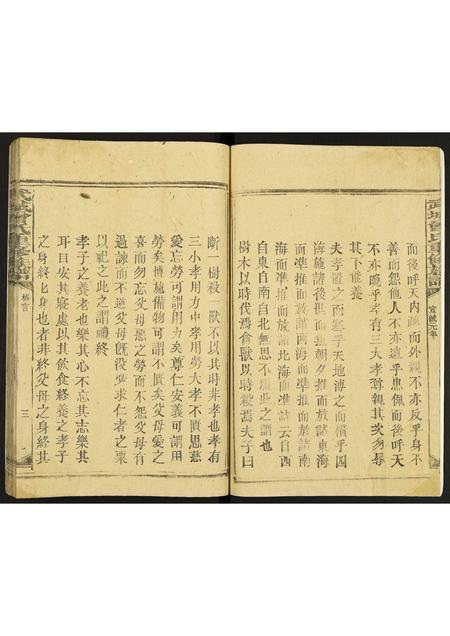 武城曾氏重修族譜
宣統元年
而後呼天內疏而外親不亦反乎身不
善而怨他人不亦遠乎患傋而後呼天
不亦晚乎孝有三大孝尊親其次勿辱
其下能養
夫孝置之而塞乎天地溥之而橫乎四
海施諸後世而無朝夕推而放諸東海
而準推而放諸西海而準推而放諸南
海而準推而放諸北海而準詩云自西
自東自南自北無思不服此之謂也
樹木以時伐焉禽獸以時殺焉夫子曰
斷一樹殺一獸不以其時非孝也孝有
三小孝用力中孝用勞大孝不匱思慈
愛忘勞可謂用力矣尊仁安義可謂用
勞矣博施備物可謂不匱矣父母愛之
喜而勿忘父母惡之勞而不怨父母有
過諫而不逆父母既沒必求仁者之粟
以祀之此之謂禮終
孝子之養老也樂其心不忘其志樂其
耳目安其寢處以其飲食終養之孝子
之身終終身也者非終父母之身終其
武城曾氏重修族譜
三